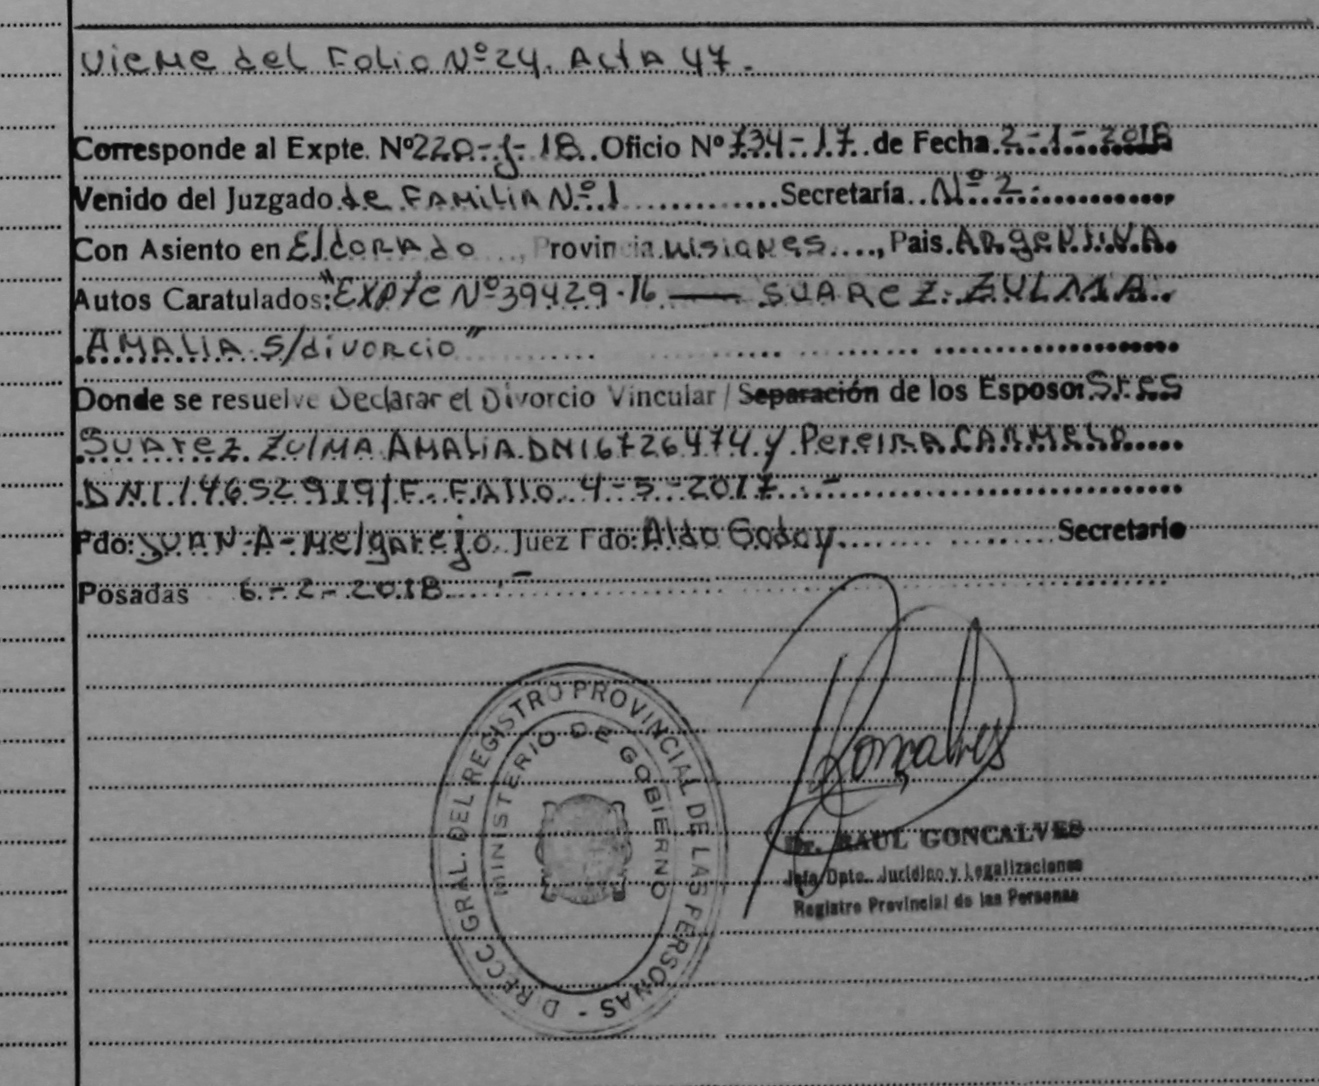 Viene del Folio Nº 24. Acta 47.
Corresponde al Expte. Nº 220-J-18. Oficio Nº 734-17 de Fecha 2-1-2018
Venido del Juzgado de Familia Nº 1 Secretaría Nº 2.
Con Asiento en Eldorado, Provincia Misiones, Pais. Argentina.
Autos Caratulados: "Expte Nº 39429-16 — SUAREZ ZULMA
AMALIA S/divorcio"
Donde se resuelve Declarar el Divorcio Vincular / Separación de los Esposos Sres
Suarez Zulma AMALIA DNI 6726474 y Pereira CARMELO
DNI 14652919/F. Fallo 4-5-2017.-
Fdo: JUAN-A-Melgarejo Juez Fdo: Aldo Godoy Secretario
Posadas 6-2-2018.-
DIRECC. GRAL. DEL REGISTRO PROVINCIAL DE LAS PERSONAS -
MINISTERIO DE GOBIERNO
Goncalves
Dr. RAUL GONCALVES
Jefe Dpto. Jurídico y Legalizaciones
Registro Provincial de las Personas